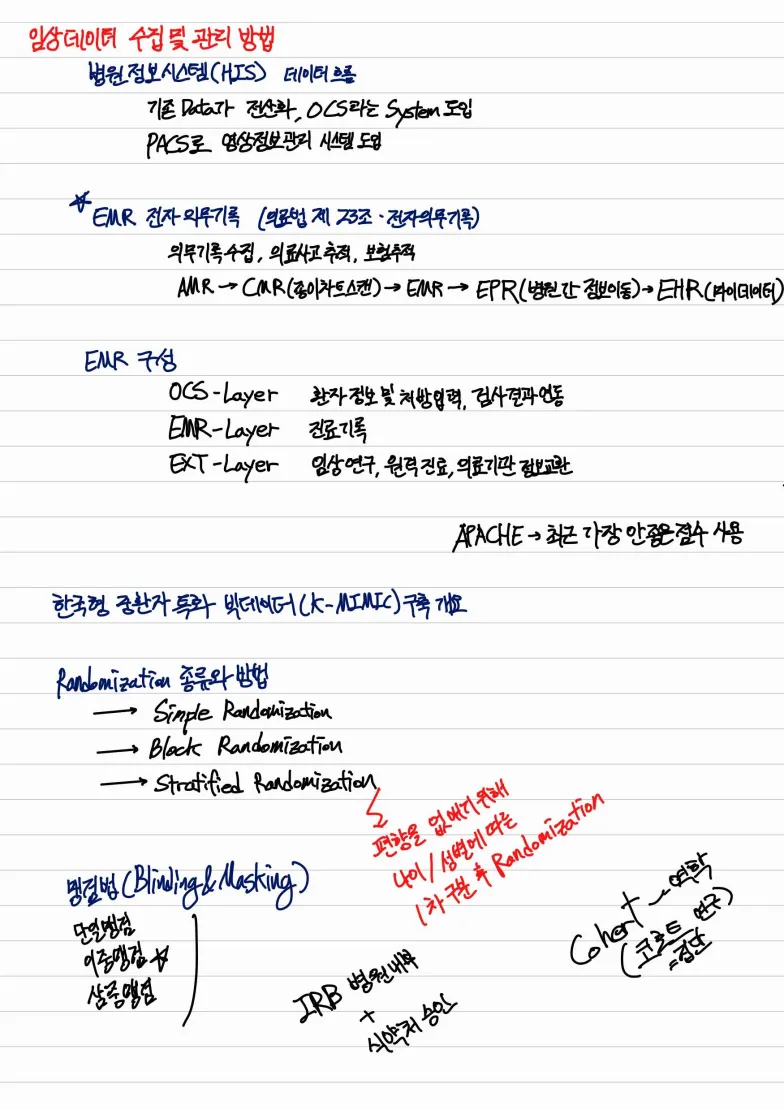 임상데이터 수집 및 관리 방법
병원정보시스템(HIS) 데이터흐름
기존 Data가 전산화, OCS라는 System 도입
PACS로 영상정보관리 시스템 도입
☆ EMR 전자의무기록 (의료법 제 23조 · 전자의무기록)
의무기록수집, 의료사고추적, 보험추적
AMR → CMR(종이차트스캔) → EMR → EPR(병원간 정보이동) → EHR(마이데이터)
EMR 구성
OCS-Layer 환자정보 및 처방입력, 검사결과연동
EMR-Layer 진료기록
EXT-Layer 임상연구, 원격진료, 의료기관 정보교환
APACHE → 최근 가장 안좋은점수 사용
한국형 중환자 특화 빅데이터(K-MIMIC)구축 개요
Randomization 종류와 방법
→ Simple Randomization
→ Block Randomization
→ Stratified Randomization
편향을 없애기위해
나이/성별에 따른
1차구분 후 Randomization
맹검법(Blinding&Masking)
단일맹검
이중맹검 ☆
삼중맹검
IRB 병원내부
+
식약처 승인
Cohort 역학
(코호트 연구)
=집단